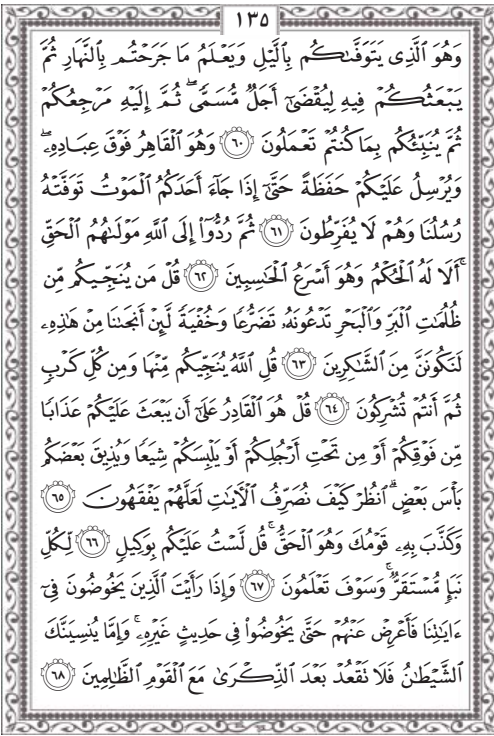 ١٣٥
وَهُوَ ٱلَّذِى يَتَوَفَّىٰكُم بِٱلَّيْلِ وَيَعْلَمُ مَا جَرَحْتُم بِٱلنَّهَارِ ثُمَّ
يَبْعَثُكُمْ فِيهِ لِيُقْضَىٰٓ أَجَلٌ مُّسَمًّى ۖ ثُمَّ إِلَيْهِ مَرْجِعُكُمْ
ثُمَّ يُنَبِّئُكُم بِمَا كُنتُمْ تَعْمَلُونَ ٦٠ وَهُوَ ٱلْقَاهِرُ فَوْقَ عِبَادِهِۦ ۖ
وَيُرْسِلُ عَلَيْكُمْ حَفَظَةً حَتَّىٰٓ إِذَا جَآءَ أَحَدَكُمُ ٱلْمَوْتُ تَوَفَّتْهُ
رُسُلُنَا وَهُمْ لَا يُفَرِّطُونَ ٦١ ثُمَّ رُدُّوٓا۟ إِلَى ٱللَّهِ مَوْلَىٰهُمُ ٱلْحَقِّ
ۚ أَلَا لَهُ ٱلْحُكْمُ وَهُوَ أَسْرَعُ ٱلْحَٰسِبِينَ ٦٢ قُلْ مَن يُنَجِّيكُم مِّن
ظُلُمَٰتِ ٱلْبَرِّ وَٱلْبَحْرِ تَدْعُونَهُۥ تَضَرُّعًا وَخُفْيَةً لَّئِنْ أَنجَىٰنَا مِنْ هَٰذِهِۦ
لَنَكُونَنَّ مِنَ ٱلشَّٰكِرِينَ ٦٣ قُلِ ٱللَّهُ يُنَجِّيكُم مِّنْهَا وَمِن كُلِّ كَرْبٍ
ثُمَّ أَنتُمْ تُشْرِكُونَ ٦٤ قُلْ هُوَ ٱلْقَادِرُ عَلَىٰٓ أَن يَبْعَثَ عَلَيْكُمْ عَذَابًا
مِّن فَوْقِكُمْ أَوْ مِن تَحْتِ أَرْجُلِكُمْ أَوْ يَلْبِسَكُمْ شِيَعًا وَيُذِيقَ بَعْضَكُم
بَأْسَ بَعْضٍ ۗ ٱنظُرْ كَيْفَ نُصَرِّفُ ٱلْءَايَٰتِ لَعَلَّهُمْ يَفْقَهُونَ ٦٥
وَكَذَّبَ بِهِۦ قَوْمُكَ وَهُوَ ٱلْحَقُّ ۚ قُل لَّسْتُ عَلَيْكُم بِوَكِيلٍ ٦٦ لِّكُلِّ
نَبَإٍ مُّسْتَقَرٌّ ۚ وَسَوْفَ تَعْلَمُونَ ٦٧ وَإِذَا رَأَيْتَ ٱلَّذِينَ يَخُوضُونَ فِىٓ
ءَايَٰتِنَا فَأَعْرِضْ عَنْهُمْ حَتَّىٰ يَخُوضُوا۟ فِى حَدِيثٍ غَيْرِهِۦ ۚ وَإِمَّا يُنسِيَنَّكَ
ٱلشَّيْطَٰنُ فَلَا تَقْعُدْ بَعْدَ ٱلذِّكْرَىٰ مَعَ ٱلْقَوْمِ ٱلظَّٰلِمِينَ ٦٨